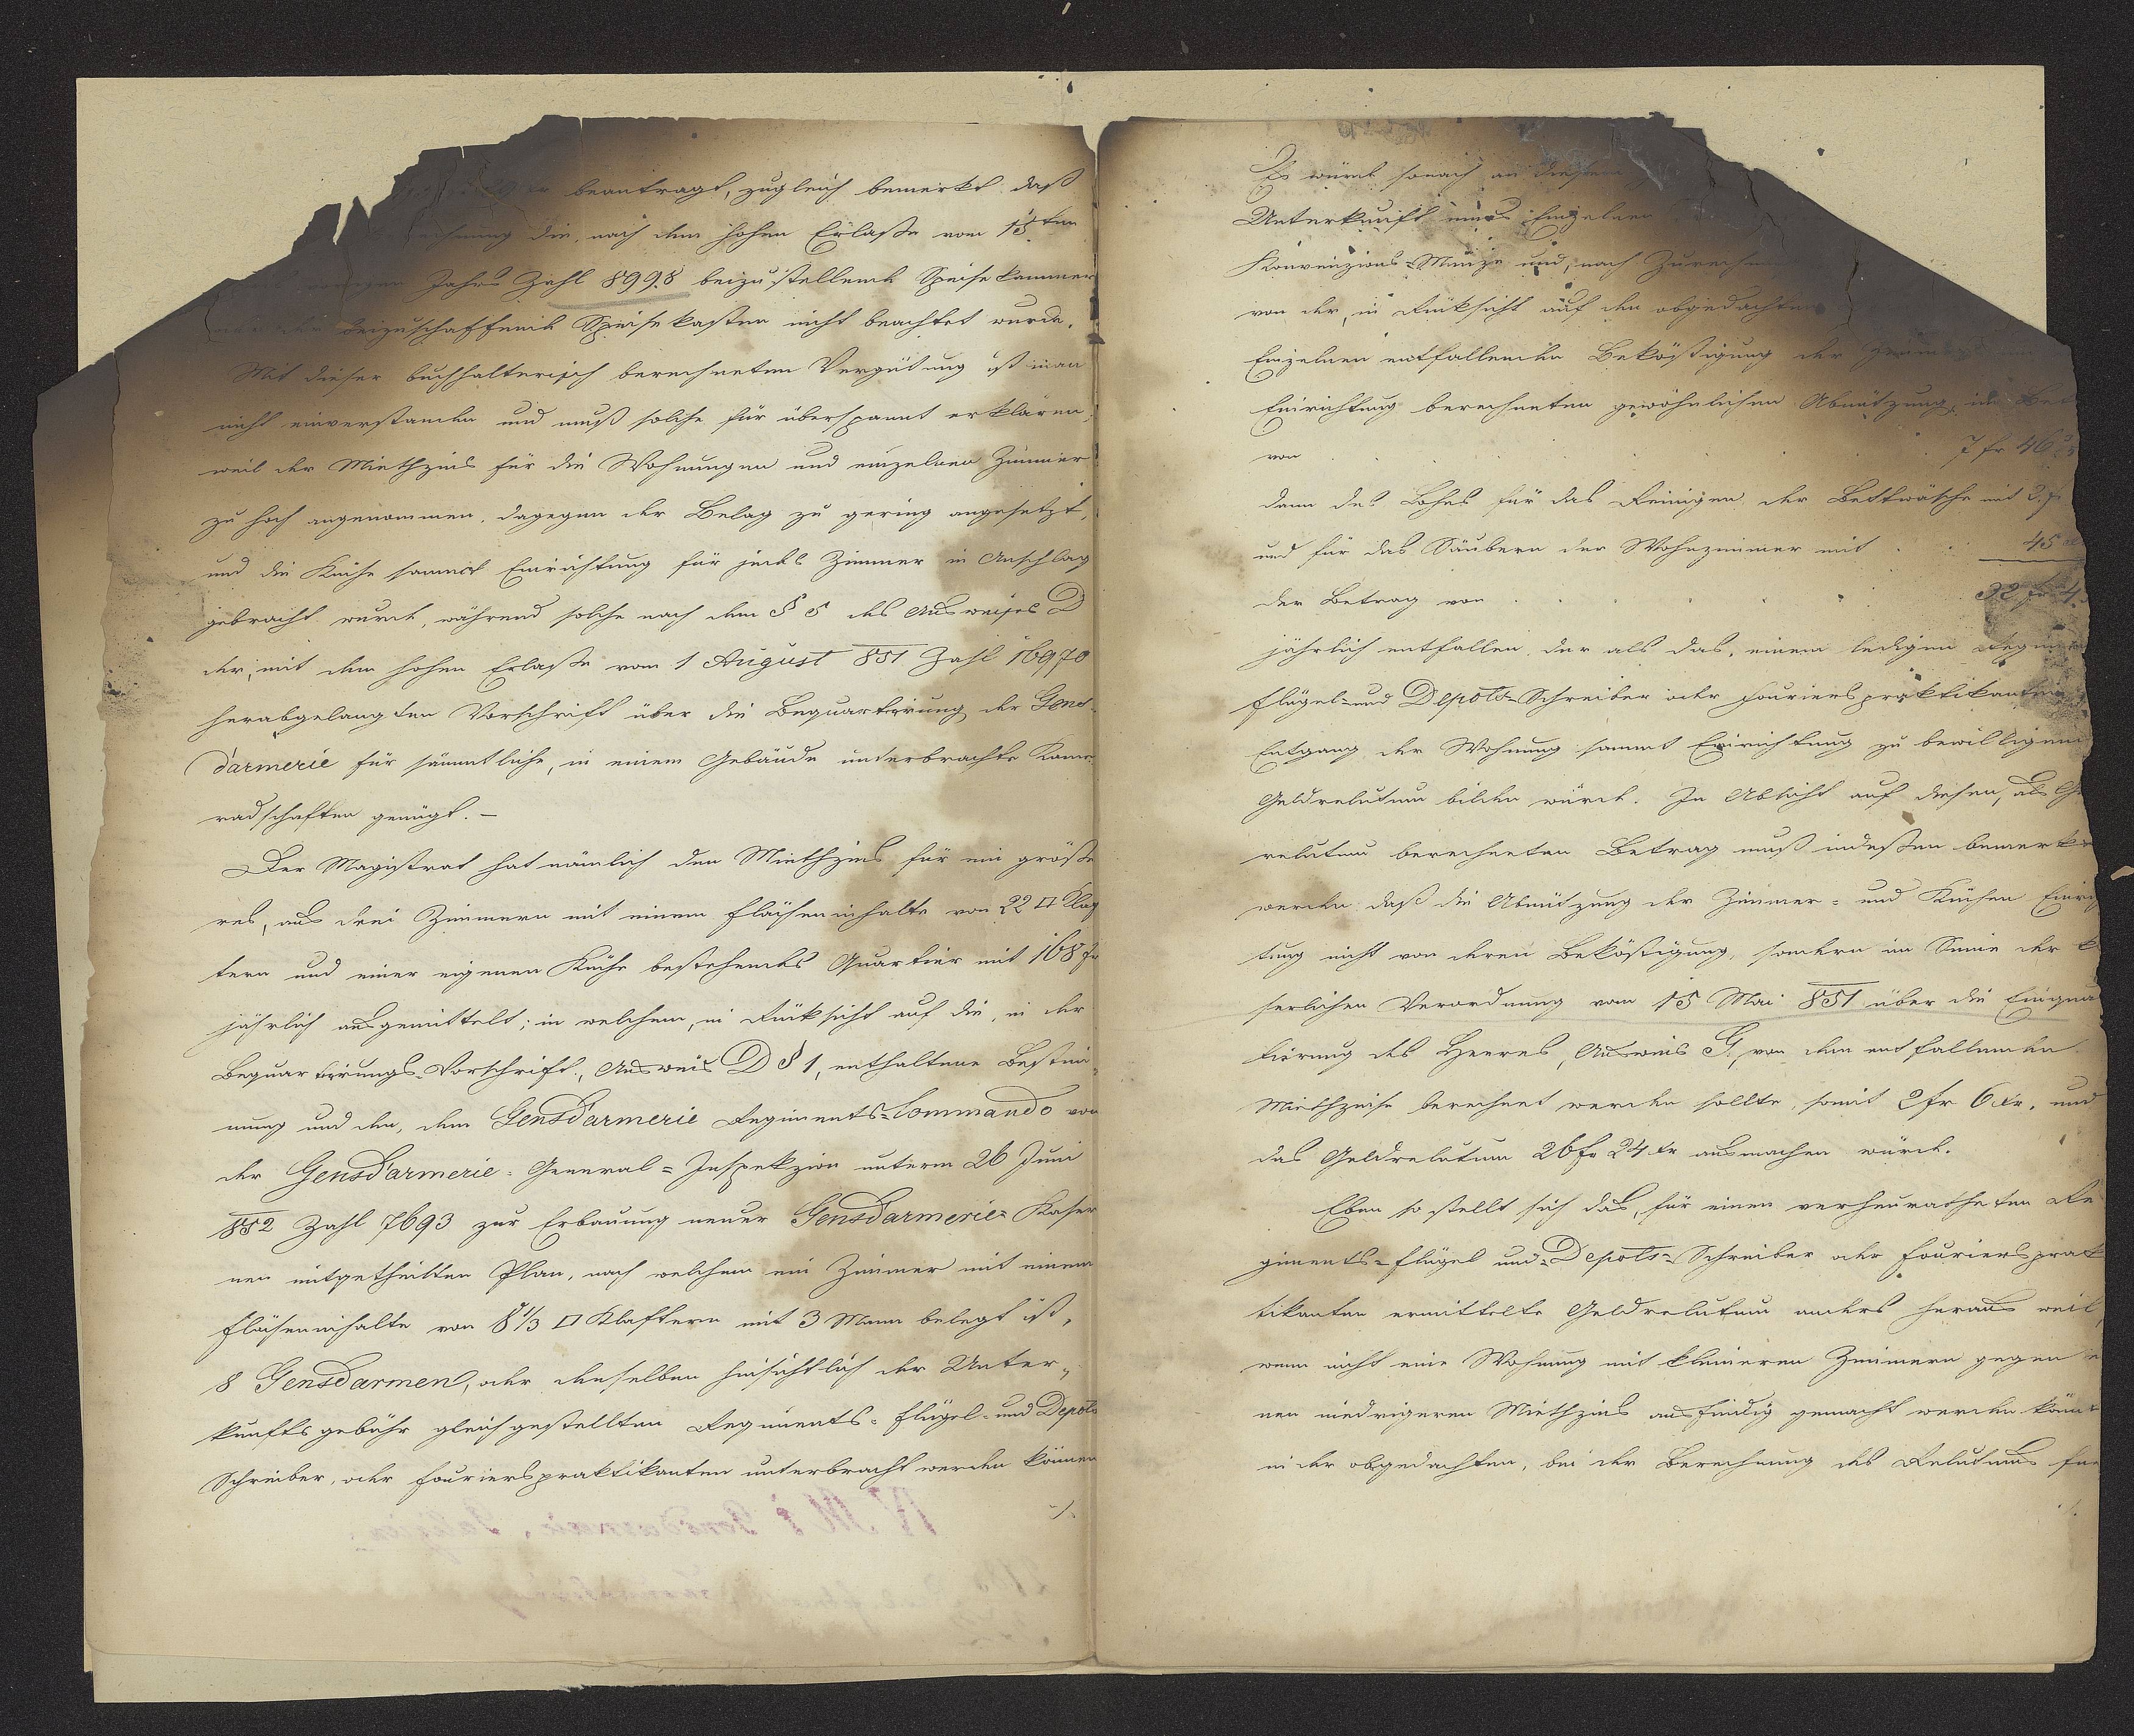 beantragt, zugleich bemerkt daß
die, nach dem hohen Erlaße vom 15ten
Jahrs Zahl 8998 beizustellende Speisekammer
der beizuschaffende Speisekasten nicht beachtet wurde.
Mit dieser buchhalterisch berechneten Vergütung ist man
nicht einverstanden und muß solche für überspannt erklären,
weil der Miethzins für die Wohnungen und einzelnen Zimmer
zu hoch angenommen, dagegen der Belag zu gering angesetzt,
und die Küche sammt Einrichtung für jedes Zimmer in Anschlag
gebracht wurde, während solche nach dem § 5 des Ausweises D
der, mit dem hohen Erlaße vom 1 August 851 Zahl 16970
herabgelangten Vorschrift über die Bequartirung der Gens-
darmerie für sämmtliche, in einem Gebäude unterbrachte Kame
radschaften genügt. –
Der Magistrat hat nämlich den Miethzins für ein größe
res, aus drei Zimmern mit einem Flächeninhalte von 22 □ Klaf
tern und einer eigenen Küche bestehendes Quartier mit 168 fr
jährlich ausgemittelt; in welchem, in Rücksicht auf die, in der
Bequartirungs-Vorschrift, Ausweis D § 1, enthaltene Bestim
mung und den, dem Gensdarmerie Regiments-Commando von
der Gensdarmerie-General-Inspekzion unterm 26 Juni
852 Zahl 7693 zur Erbauung neuer Gensdarmerie-Kaser
nen mitgetheilten Plan, nach welchem ein Zimmer mit einem
Flächeninhalte von 8 1/3 □ Klaftern mit 3 Mann belegt ist,
8 Gensdarmen, oder denselben hinsichtlich der Unter-
kunftsgebühr gleichgestellten Regiments-Flügel- und Depots
Schreiber, oder Fourierspraktikanten unterbracht werden können
./.
Es würde sonach an
Unterkunft eines Einzelnen
Konvenzions-Münze und, nach Zurechnung
von der, in Rücksicht auf den obgedachten
Einzelnen entfallenden Beköstigung der Zimmer
Einrichtung berechneten gewöhnlichen Abnützung, im Bet
von . . . . . 7 fr 46
dann des Lohns für das Reinigen der Bettwäsche mit 3 fr
und für das Säubern der Wohnzimmer mit . . 45
der Betrag von . . . . 32 fr 4
jährlich entfallen, der als das, einem ledigen Regiments
Flügel- und Depots-Schreiber oder Fourierspraktikanten
Entgang der Wohnung sammt Einrichtung zu bewilligende
Geldrelutum bilden würde. In Absicht auf diesen, als Ge
relutum berechneten Betrag muß indeßen bemerkt
werden daß die Abnützung der Zimmer- und Küchen Einrich
tung nicht von deren Beköstigung, sondern im Sinne der k
serlichen Verordnung vom 15 Mai 851 über die Einquar
tirung des Heeres, Ausweis G, von dem entfallenden
Miethzinse berechnet werden sollte, somit 2 fr 6 kr, und
das Geldrelutum 26 fr 24 kr ausmachen würde.
Eben so stellt sich das, für einen verheuratheten Re
giments-Flügel und-Depots-Schreiber oder Fouriersprak
tikanten ermittelte Geldrelutum anders heraus weil,
wenn nicht eine Wohnung mit kleineren Zimmern gegen ei
nen niedrigeren Miethzins ausfindig gemacht werden könnt
in der obgedachten, bei der Berechnung des Relutums für
./.